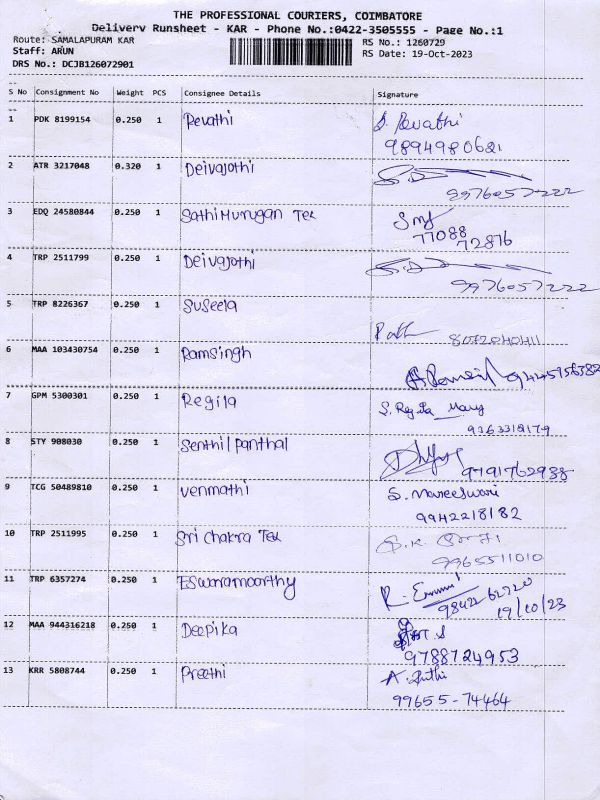 THE PROFESSIONAL COURIERS, COIMBATORE
Delivery Runsheet - KAR - Phone No.:0422-3505555 - Page No.:1
Route: SAMALAPURAM KAR RS No.: 1260729
Staff: ARUN RS Date: 19-Oct-2023
DRS No.: DCJB126072901
S No Consignment No Weight PCS Consignee Details Signature
1 PDK 8199154 0.250 1 Revathi S. Revathi
9894980621
2 ATR 3217048 0.320 1 Deivajothi
9976057222
3 EDQ 24580844 0.250 1 Sathi Murugan Tex
77088
72876
4 TRP 2511799 0.250 1 Deivajothi
9976057222
5 TRP 8226367 0.250 1 Suseela
6 MAA 103430754 0.250 1 Ramsingh
7 GPM 5300301 0.250 1 Regila S. Regila Mary
9363318179
8 STY 908030 0.250 1 Senthil panthal
9791762938
9 TCG 50489810 0.250 1 venmathi S. Maneeswari
9942218182
10 TRP 2511995 0.250 1 Sri Chakra Tex
9965511010
11 TRP 6357274 0.250 1 Eswaramoorthy
98422 62720
19/10/23
12 MAA 944316218 0.250 1 Deepika
9788724953
13 KRR 5808744 0.250 1 Preethi
99655-74464